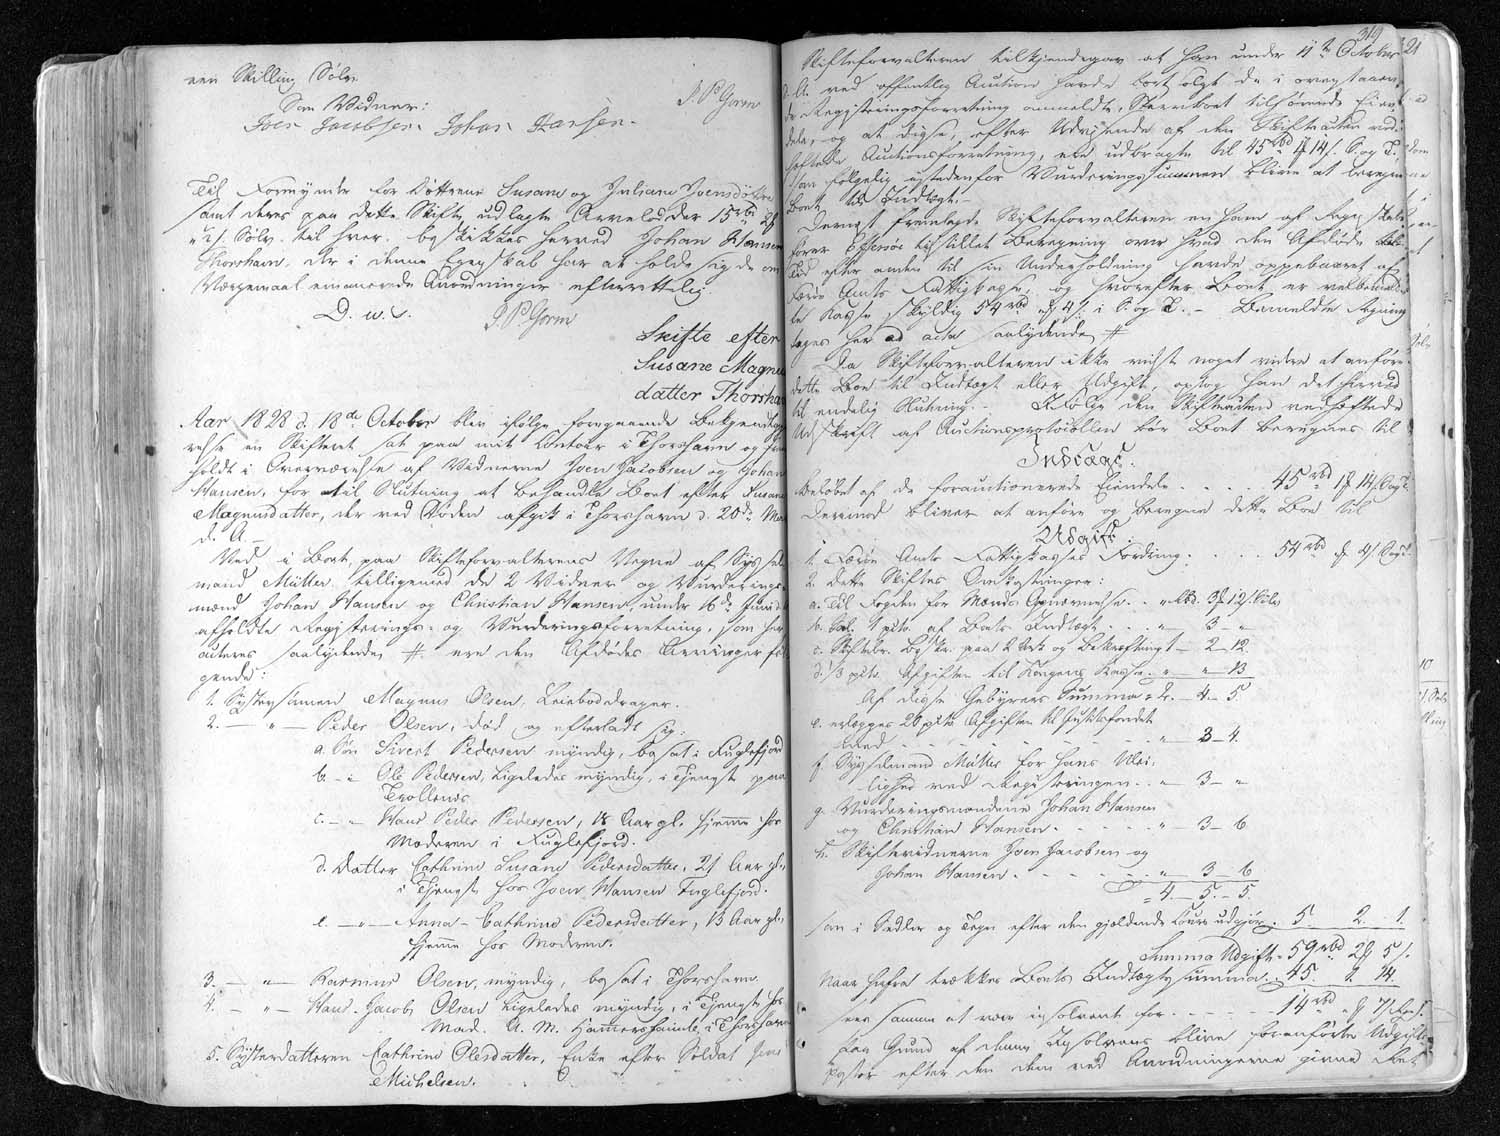 een Skilling Sølv.
Som Vidner: P. P. Gorm
Joen Jacobsen. Johan Hansen.
Til Formynder for Døttrene Susane og Juliane Joensdøttre
samt deres paa dette Skifte udlagte Arvelodder 15 rbd
Sølv. til hver. beskikkes herved Johan Hansen
Thorshavn, der i denne Egenskab har at holde sig de om
Værgemaal emanerede Anordninger efterrettelig.
D. u. s. P. P. Gorm
Skifte efter
Susane Magnus
datter Thorshavn
Aar 1828 d. 18de October blev ifølge foregaaende Bekjendtgjø
relse en Skifteret sat paa mit Contoir i Thorshavn og
holdt i Overværelse af Vidnerne Joen Jacobsen og Johan
Hansen, for til Slutning at behandle Boet efter Susane
Magnusdatter, der ved Døden afgik i Thorshavn d. 20de
d. A.
Ved i Boet, paa Skifteforvalterens Vegne af Syssel
mand Müller tilligemed de 2 Vidner og Vurderings
mænd Johan Hansen og Christian Hansen, under 16de Juni
afholdte Registerings- og Vurderingsforretning, som her
acteres saalydende # ere den Afdødes Arvinger føl
gende:
1. Søstersønnen Magnus Olsen, Leiebeddrager.
2. — " — Peder Olsen, død og efterladt sig:
a. Søn Sivert Pedersen myndig, bosat i Fuglefjord
b. — Ole Pedersen, ligeledes myndig, i Tjeneste paa
Trollenæs
c. — " — Hans Peder Pedersen, 18 Aar gl. hjemme hos
Moderen i Fuglefjord.
d. Datter Cathrine Susane Pedersdatter, 21 Aar gl.,
i Tjeneste hos Joen Hansen Fuglefjord.
e. — " — Anna Cathrine Pedersdatter, 13 Aar gl.,
hjemme hos Moderen.
3. — " — Rasmus Olsen, myndig, bosat i Thorshavn.
4. — " — Hans Jacob Olsen ligeledes myndig, i Tjeneste hos
Mad. A. M. Hammershaimb, i Thorshavn
5. Søsterdatteren Cathrine Olesdatter, Enke efter Soldat Jens
Michelsen.
319
Skifteforvalteren tilkjendegav at han under 4de October
d. A. ved offentlig Auction havde bortsolgt de i ovenstaaen
de Registeringsforretning anmeldte, Stervboet tilhørende Eien
dele, og at disse, efter Udvisende af den Skifteacten ved
heftede Auctionsforretning, ere udbragte til 45 rbd 1 14 s. S. og T.
som følgelig istedenfor Vurderingssummen blive at beregne
Boet til Indtægt.
Dernæst fremlagde Skifteforvalteren en ham af Regnskabs
fører Effersøe tilstillet Beregning over hvad den Afdøde
Tid efter anden til sin Underholdning havde oppebaaret af
Færøe Amts Fattigkasse, og hvorefter Boet er
te Kasse skyldig 54 rbd 4 s. i S. og T. — Bemeldte Regning
tages her ad acta saalydende #
Da Skifteforvalteren ikke vidste noget videre at anføre
dette Boe til Indtægt eller Udgift, optog han det herved
til endelig Slutning. — Ifølge den Skifteacten vedhæftede
Udskrift af Auctionsprotocollen bør Boet beregnes til
Indtægt.
Beløbet af de forauctionerede Eiendele . . . . 45 rbd 1 14 s. S og T.
Derimod bliver at anføre og beregne dette Boe til
Udgift.
1. Færøe Amts Fattigkasses Fordring . . . . 54 rbd 4 s. S og T.
2. Dette Skiftes Omkostninger:
a. Til Fogden for Mænds Opnævnelse . . " Rbd. 3 12 s. Sølv
b. Sal. 1 pCto af Boets Indtægt . . . " 3 "
c. Skiftebr. Beskr. paa 2 Ark og Bekræftningt — 2 - 12.
d. 1/3 pCto. Afgiften til Kongens Kasse. " — " — 13
Af disse Gebyrer Summa 2. — 4 — 5
e. erlægges 20 pCto Afgiften til Justitsfondet
med . . . . " 3 — 4.
f. Sysselmand Müller for hans Vilei,
lighed ved Registeringen . . " — 3 — "
g. Vurderingsmændene Johan Hansen
og Christian Hansen . . . . " — 3 — 6
h. Skiftevidnerne Joen Jacobsen og
Johan Hansen . . . . " — 3 — 6
4 — 5 — 5.
som i Sedler og Tegn efter den gjældende Cours udgjør . 5. 2. 1.
Summa Udgift . 59 rbd 2 5 s.
Naar herfra trækkes Boets Indtægts summa . 45 1. 14.
sees samme at være insolvent for . . . 14 rbd 7 s.
Paa Grund af denne Insolvens blive foranførte Udgifts
poster efter den dem ved Anordningerne givne Ret